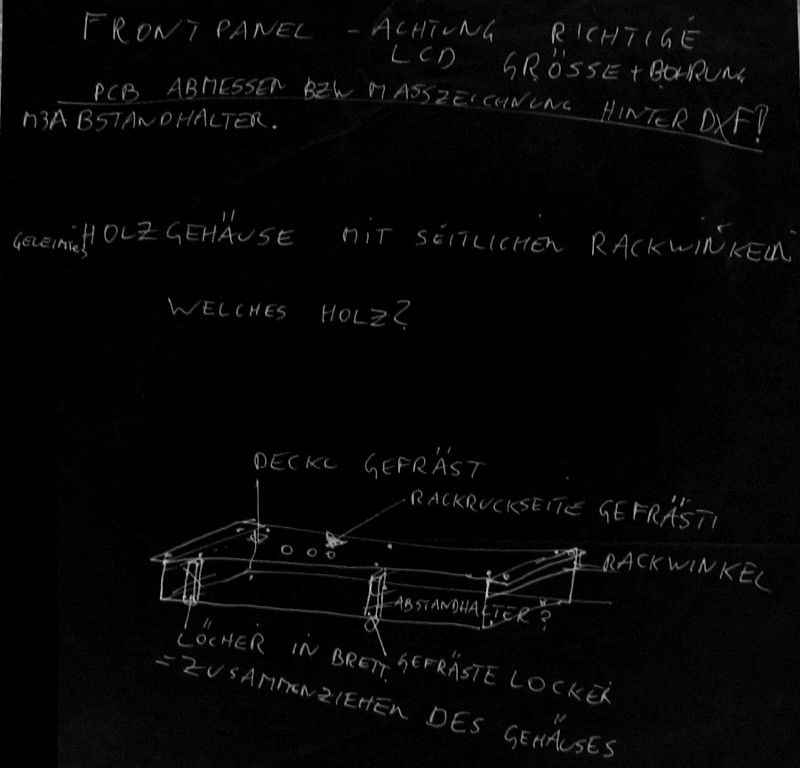 FRONTPANEL - ACHTUNG RICHTIGE
LCD GRÖSSE + BOHRUNG
PCB ABMESSEN BZW MASSZEICHNUNG HINTER DXF!
M3 ABSTANDHALTER.
GELEIMTES HOLZGEHÄUSE MIT SEITLICHEN RACKWINKELN
WELCHES HOLZ?
DECKL GEFRÄST
RACKRUCKSEITE GEFRÄST!
RACKWINKEL
ABSTANDHALTER?
LÖCHER IN BRETT. GEFRÄSTE LOCHER
= ZUSAMMENZIEHEN DES GEHÄUSES